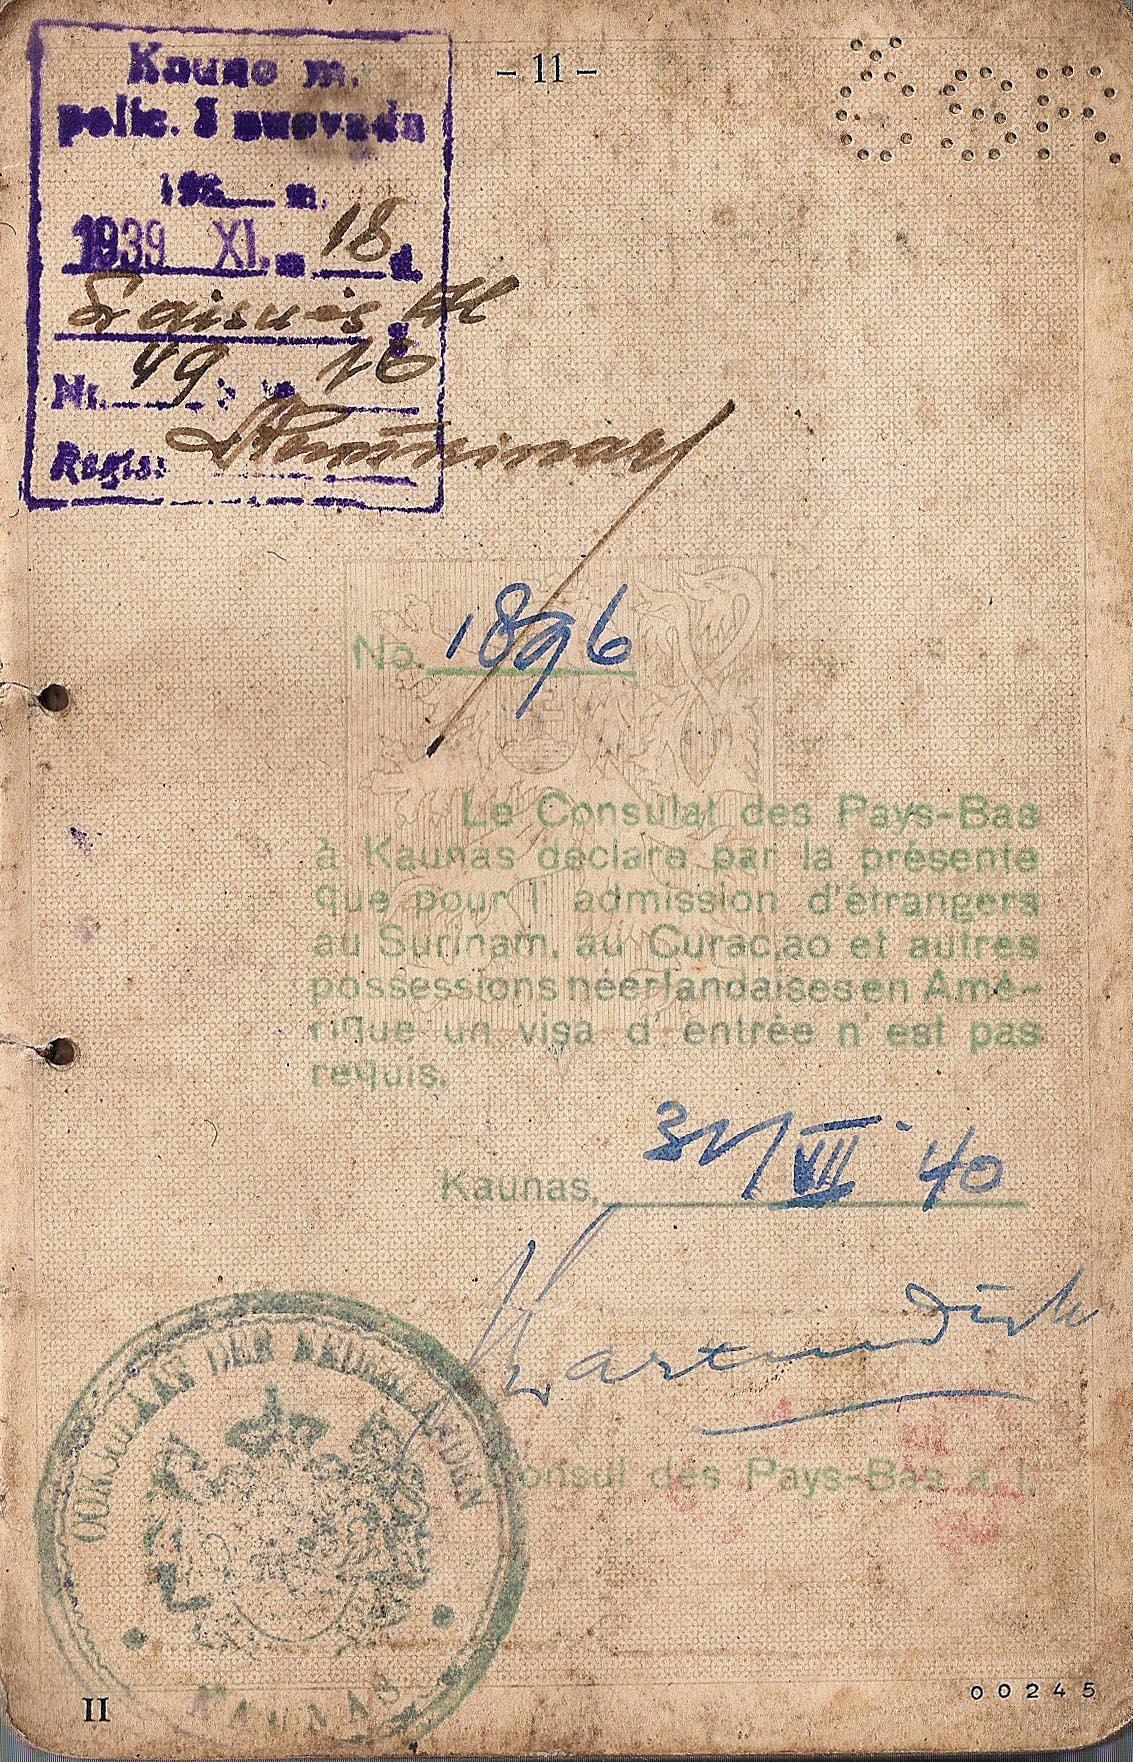 - 11 -
ČSR
Kauno m.
polic. I nuovada
193__ m.
1939 XI. m. 18 d.
Nr. 49 10
Regis:
No. 1896
Le Consulat des Pays-Bas
à Kaunas déclare par la présente
que pour l'admission d'étrangers
au Surinam, au Curaçao et autres
possessions néerlandaises en Amé-
rique un visa d'entrée n'est pas
requis.
Kaunas, 31/VII '40
Consul des Pays-Bas a. i.
CONSULAAT DER NEDERLANDEN
KAUNAS
II
00245